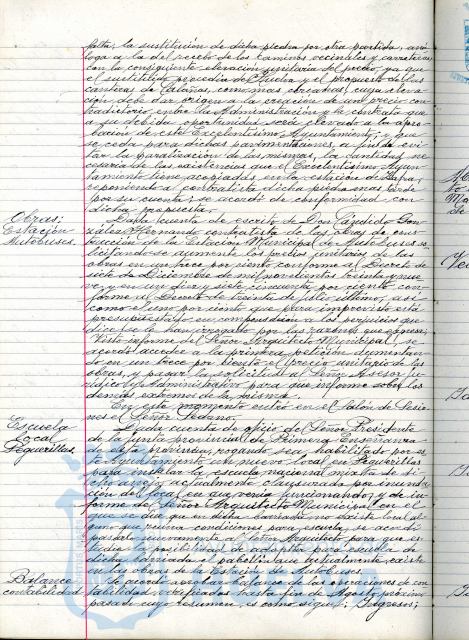 falta, la sustitución de dicha piedra por otra partida, aná
loga a la del recebo de los caminos vecinales y carreteras
con la consiguiente elevación unitaria del precio ya que
el sustituido procedía de y el propuesto de las
canteras de Calañas, como más cercanas, cuya eleva
ción debe dar origen a la creación de un precio con
tradictorio entre la Administración y la contrata que
a su debida oportunidad será elevado a la apro
bación de este Excelentísimo Ayuntamiento, y que
se ceda para dichas pavimentaciones, a fin de evi
tar la paralización de las mismas, la cantidad ne
cesaria de las existencias que el Excelentísimo Ayun
tamiento tiene acopiadas en la estación de Zafra,
reponiendo el contratista dicha piedra más tarde
por su cuenta; se acordó de conformidad con
dicha propuesta.
Obras:
Estación
Autobuses.
Dada cuenta de escrito de Don Cándido Gon
zález Hernando contratista de las obras de cons
trucción de la Estación Municipal de Autobuses so
licitando se aumente los precios unitarios de las
obras en un trece por ciento conforme al Decreto de
siete de Diciembre de mil novecientos treinta y nue
ve, y en un diez y siete cincuenta por ciento con
forme al Decreto de treinta de julio último, así
como el uno por ciento que para imprevisto está
presupuestado en compensación a los perjuicios que
dice se le han irrogado por las razones que expresa;
Visto informe del Señor Arquitecto Municipal, se
acordó acceder a la primera petición aumentan
do en un trece por ciento el precio unitario de las
obras, y pasar la solicitud al Señor Asesor ju
rídico y Administrativo para que informe sobre los
demás extremos de la misma.
En este momento entró en el Salón de Sesio
nes el Señor Sedano.
Escuela
Local
Peguerillas.
Dada cuenta de oficio del Señor Presidente
de la Junta provincial de Primera Enseñanza
de esta provincia, rogando sea habilitado por es
te Ayuntamiento un nuevo local en Peguerillas
para instalar la escuela nacional mixta de di
cho actualmente clausurada por inunda
ción del local en que venía funcionando, y de in
forme del Señor Arquitecto Municipal en el
que se dice que en dicha barriada no existe local al
guno que reúna condiciones para escuela, se acordó
pasar nuevamente al Señor Arquitecto para que es
tudie la posibilidad de adaptar para escuela de
dicha barriada el pabellón que actualmente existe
en las obras de la Estación de Autobuses.
Balance
contabilidad
Se acordó aprobar balance de las operaciones de con
tabilidad verificadas hasta fin de Agosto próximo
pasado cuyo resumen, es como sigue: Ingresos;